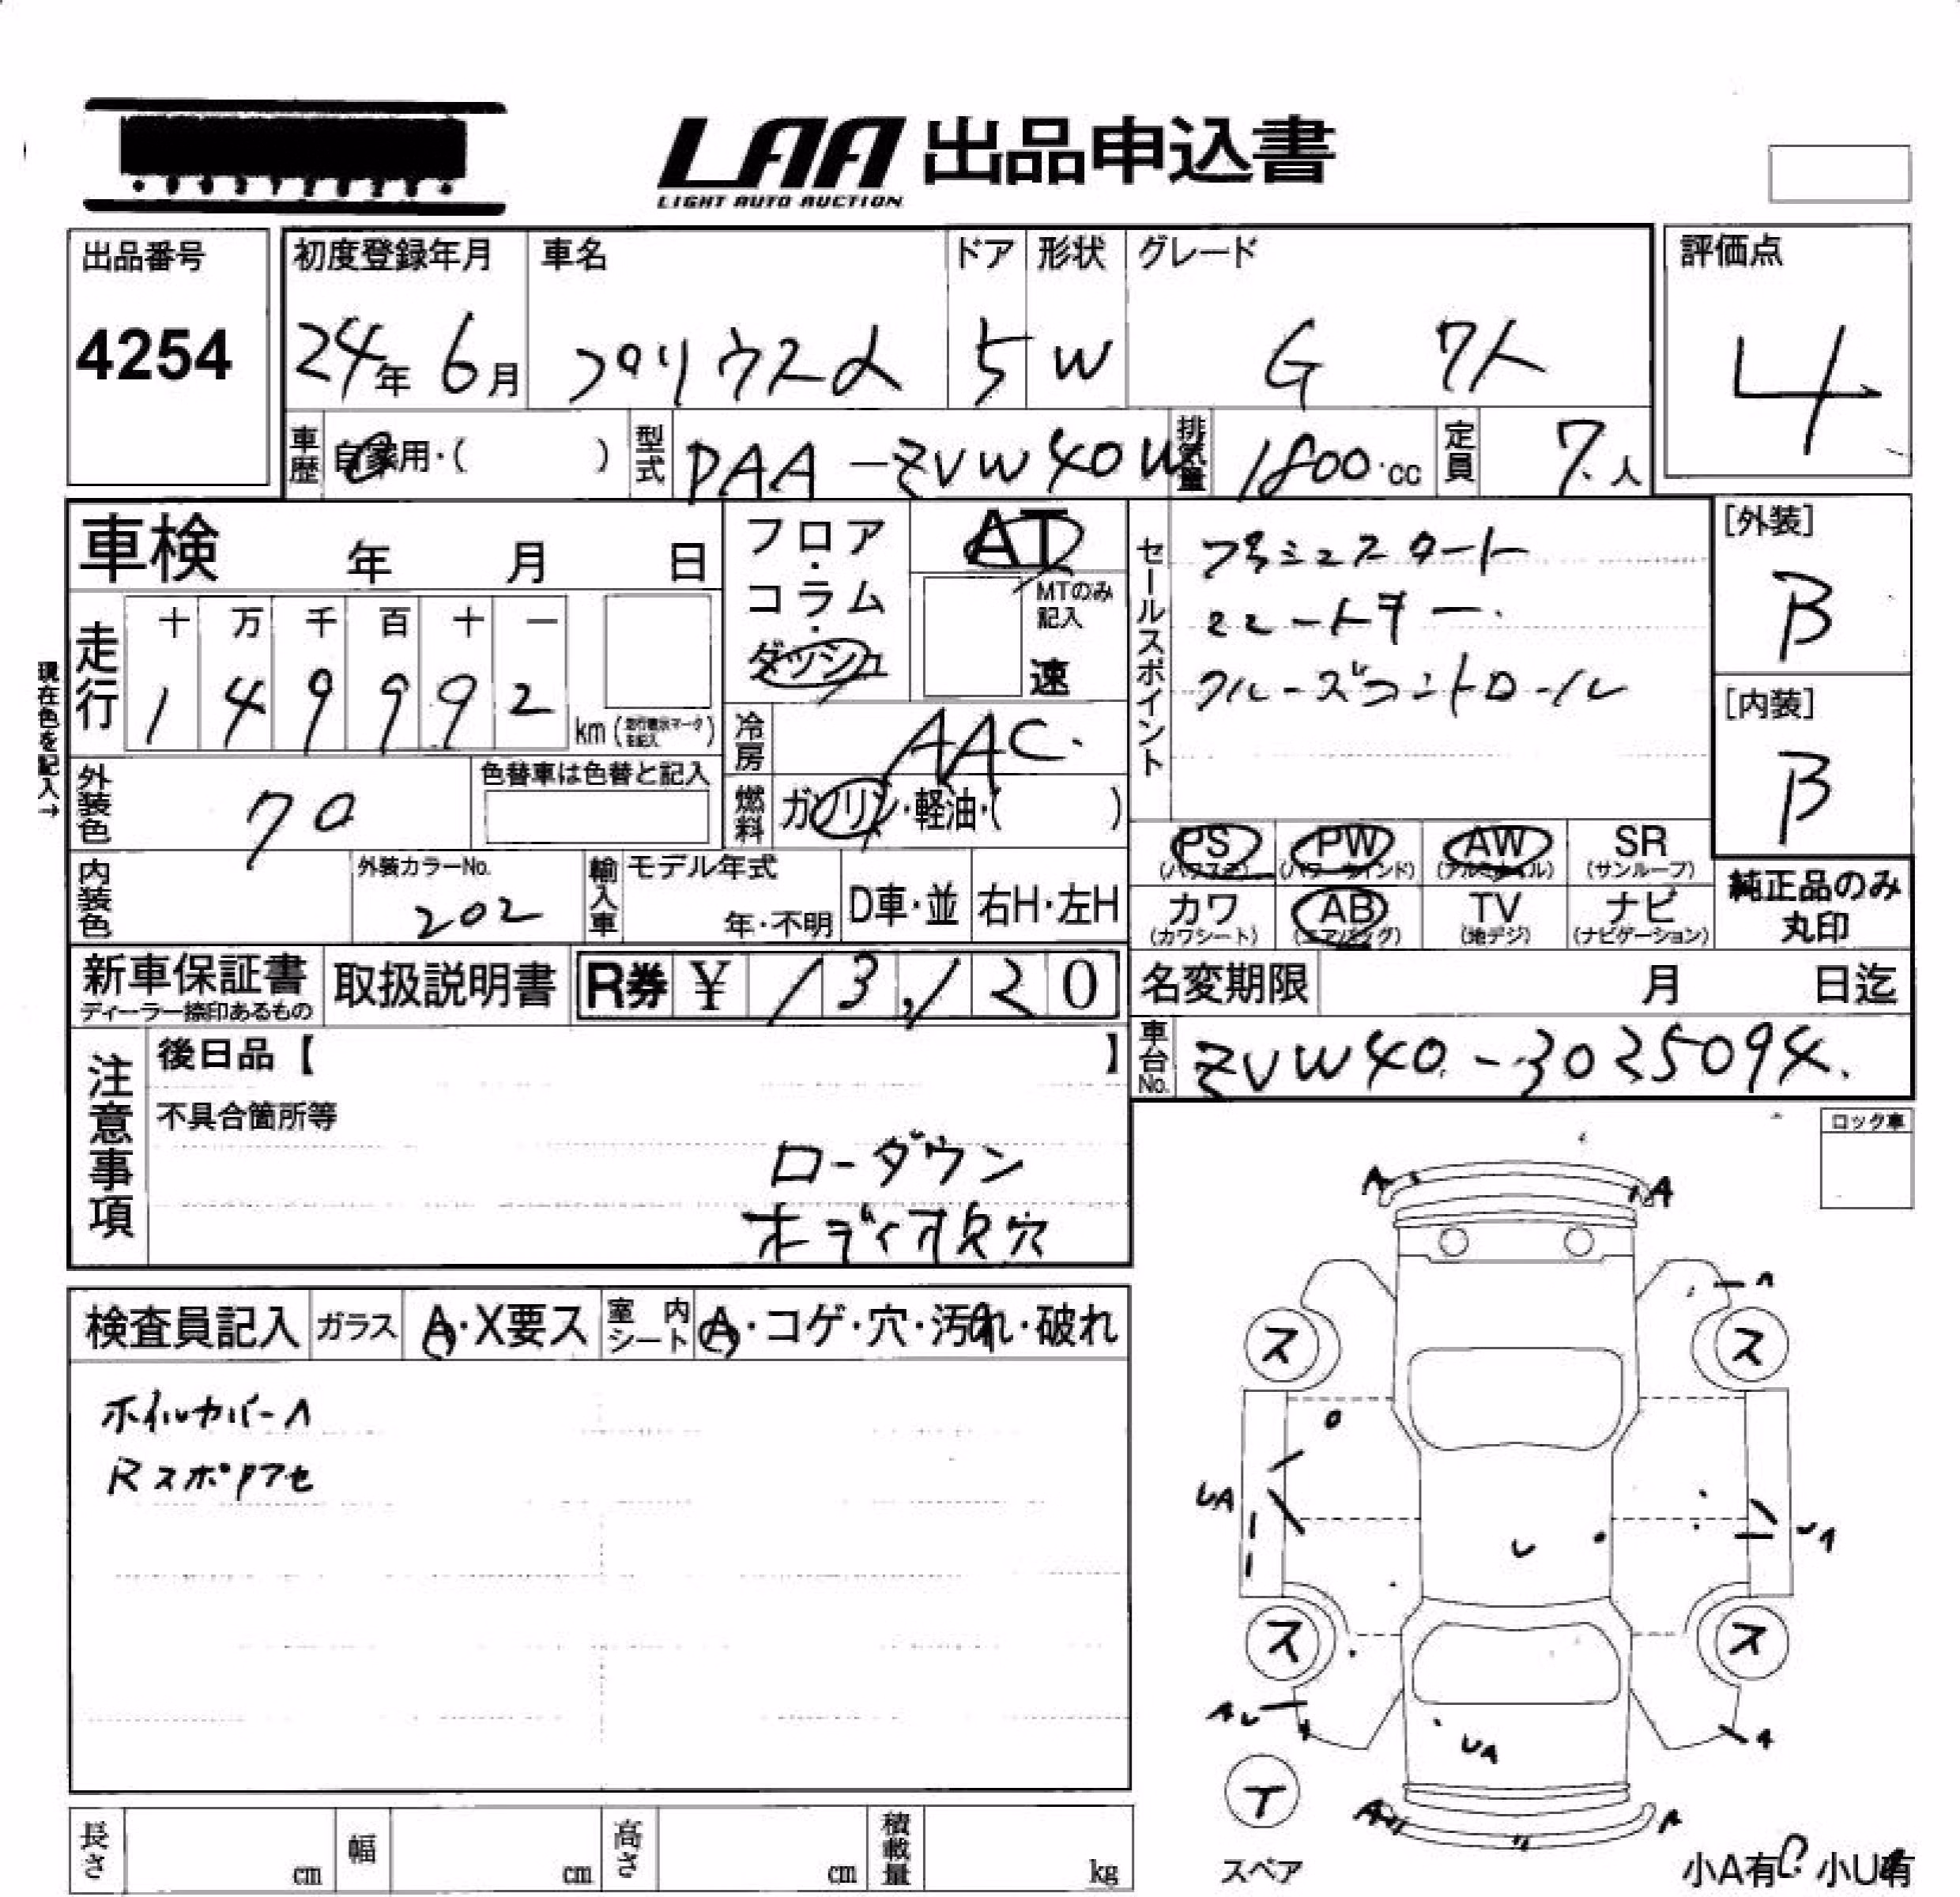 LAA 出品申込書
LIGHT AUTO AUCTION
出品番号
4254
初度登録年月
24年 6月
車名
プリウスα
ドア
5
形状
W
グレード
G 7人
評価点
4
車歴
自家用・( )
型式
DAA-ZVW40W
排気量
1800 cc
定員
7.人
車検 年 月 日
フロア・コラム・ダッシュ
AT
MTのみ記入
速
セールスポイント
プッシュスタート
スマートキー.
クルーズコントロール
[外装]
B
[内装]
B
現在色を記入→
走行
十 万 千 百 十 一
1 4 9 9 9 2
km
冷房
AAC.
外装色
クロ
色替車は色替と記入
燃料
ガソリン・軽油・( )
PS
(パワステ)
PW
(パワーウインド)
AW
(アルミホイル)
SR
(サンルーフ)
内装色
外装カラーNo.
202
輸入車
モデル年式
年・不明
D車・並
右H・左H
カワ
(カワシート)
AB
(エアバッグ)
TV
(地デジ)
ナビ
(ナビゲーション)
純正品のみ
丸印
新車保証書
ディーラー捺印あるもの
取扱説明書
R券 ¥ 13,120
名変期限 月 日迄
車台No.
ZVW40-3025094.
注意事項
後日品【 】
不具合箇所等
ローダウン
ボディ
穴
ロック車
検査員記入
ガラス
A・X要ス
室内シート
A・コゲ・穴・汚れ・破れ
ホイルカバーA
A A
A
ス ス
UA
UA
U
ス ス
AU
A
UA
T
スペア
A A
小A有 小U有
長さ cm
幅 cm
高さ cm
積載量 kg